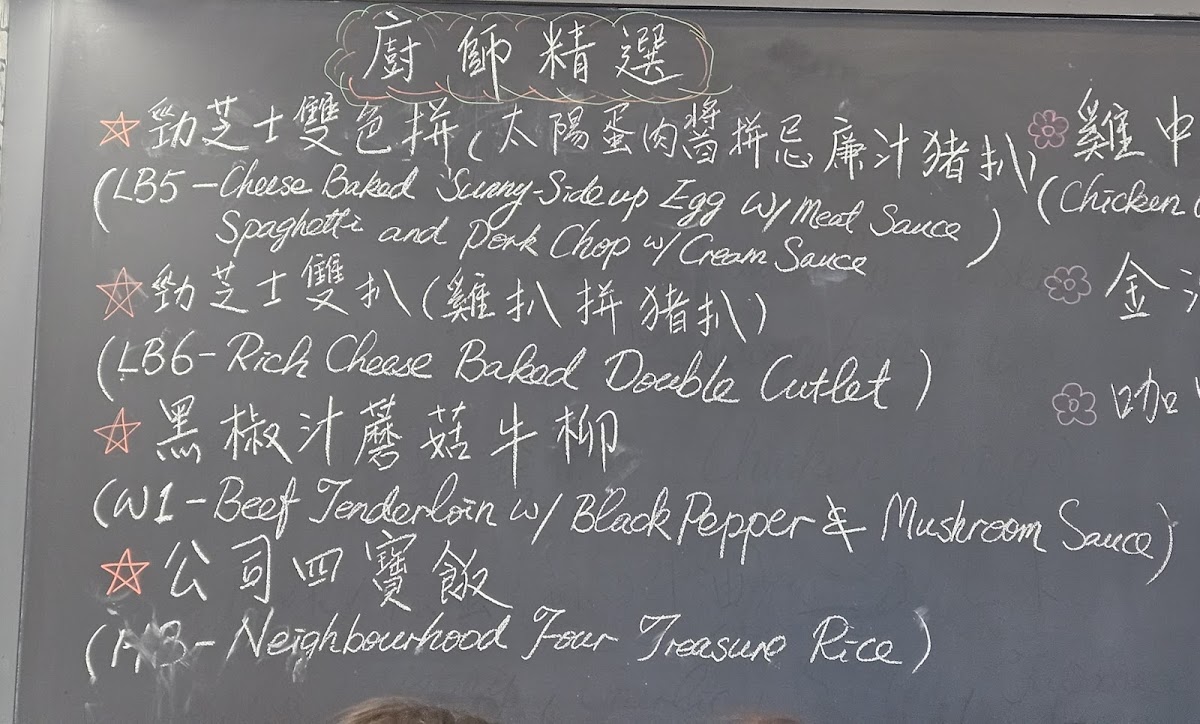 廚師精選
勁芝士雙色拼(太陽蛋肉醬拼忌廉汁豬扒)
(LB5-Cheese Baked Sunny-Side up Egg w/ Meat Sauce
Spaghetti and Pork Chop w/ Cream Sauce)
勁芝士雙扒(雞扒拼豬扒)
(LB6-Rich Cheese Baked Double Cutlet)
黑椒汁蘑菇牛柳
(W1-Beef Tenderloin w/ Black Pepper & Mushroom Sauce)
公司四寶飯
Neighbourhood Four Treasure Rice)
雞中
(Chicken
金
咖